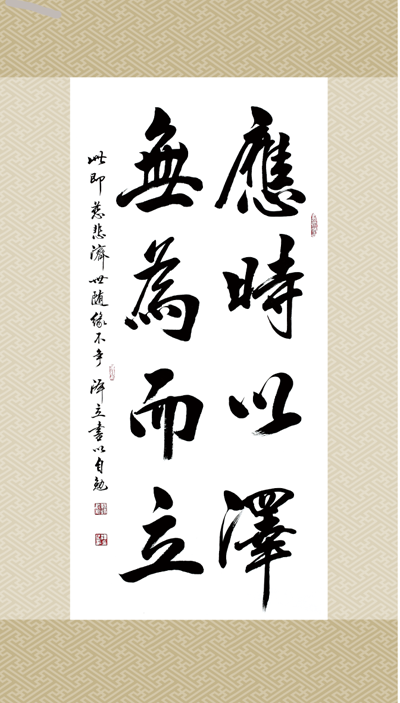 應時以澤
無為而立
此即慈悲濟世隨緣不爭 澤立書以自勉